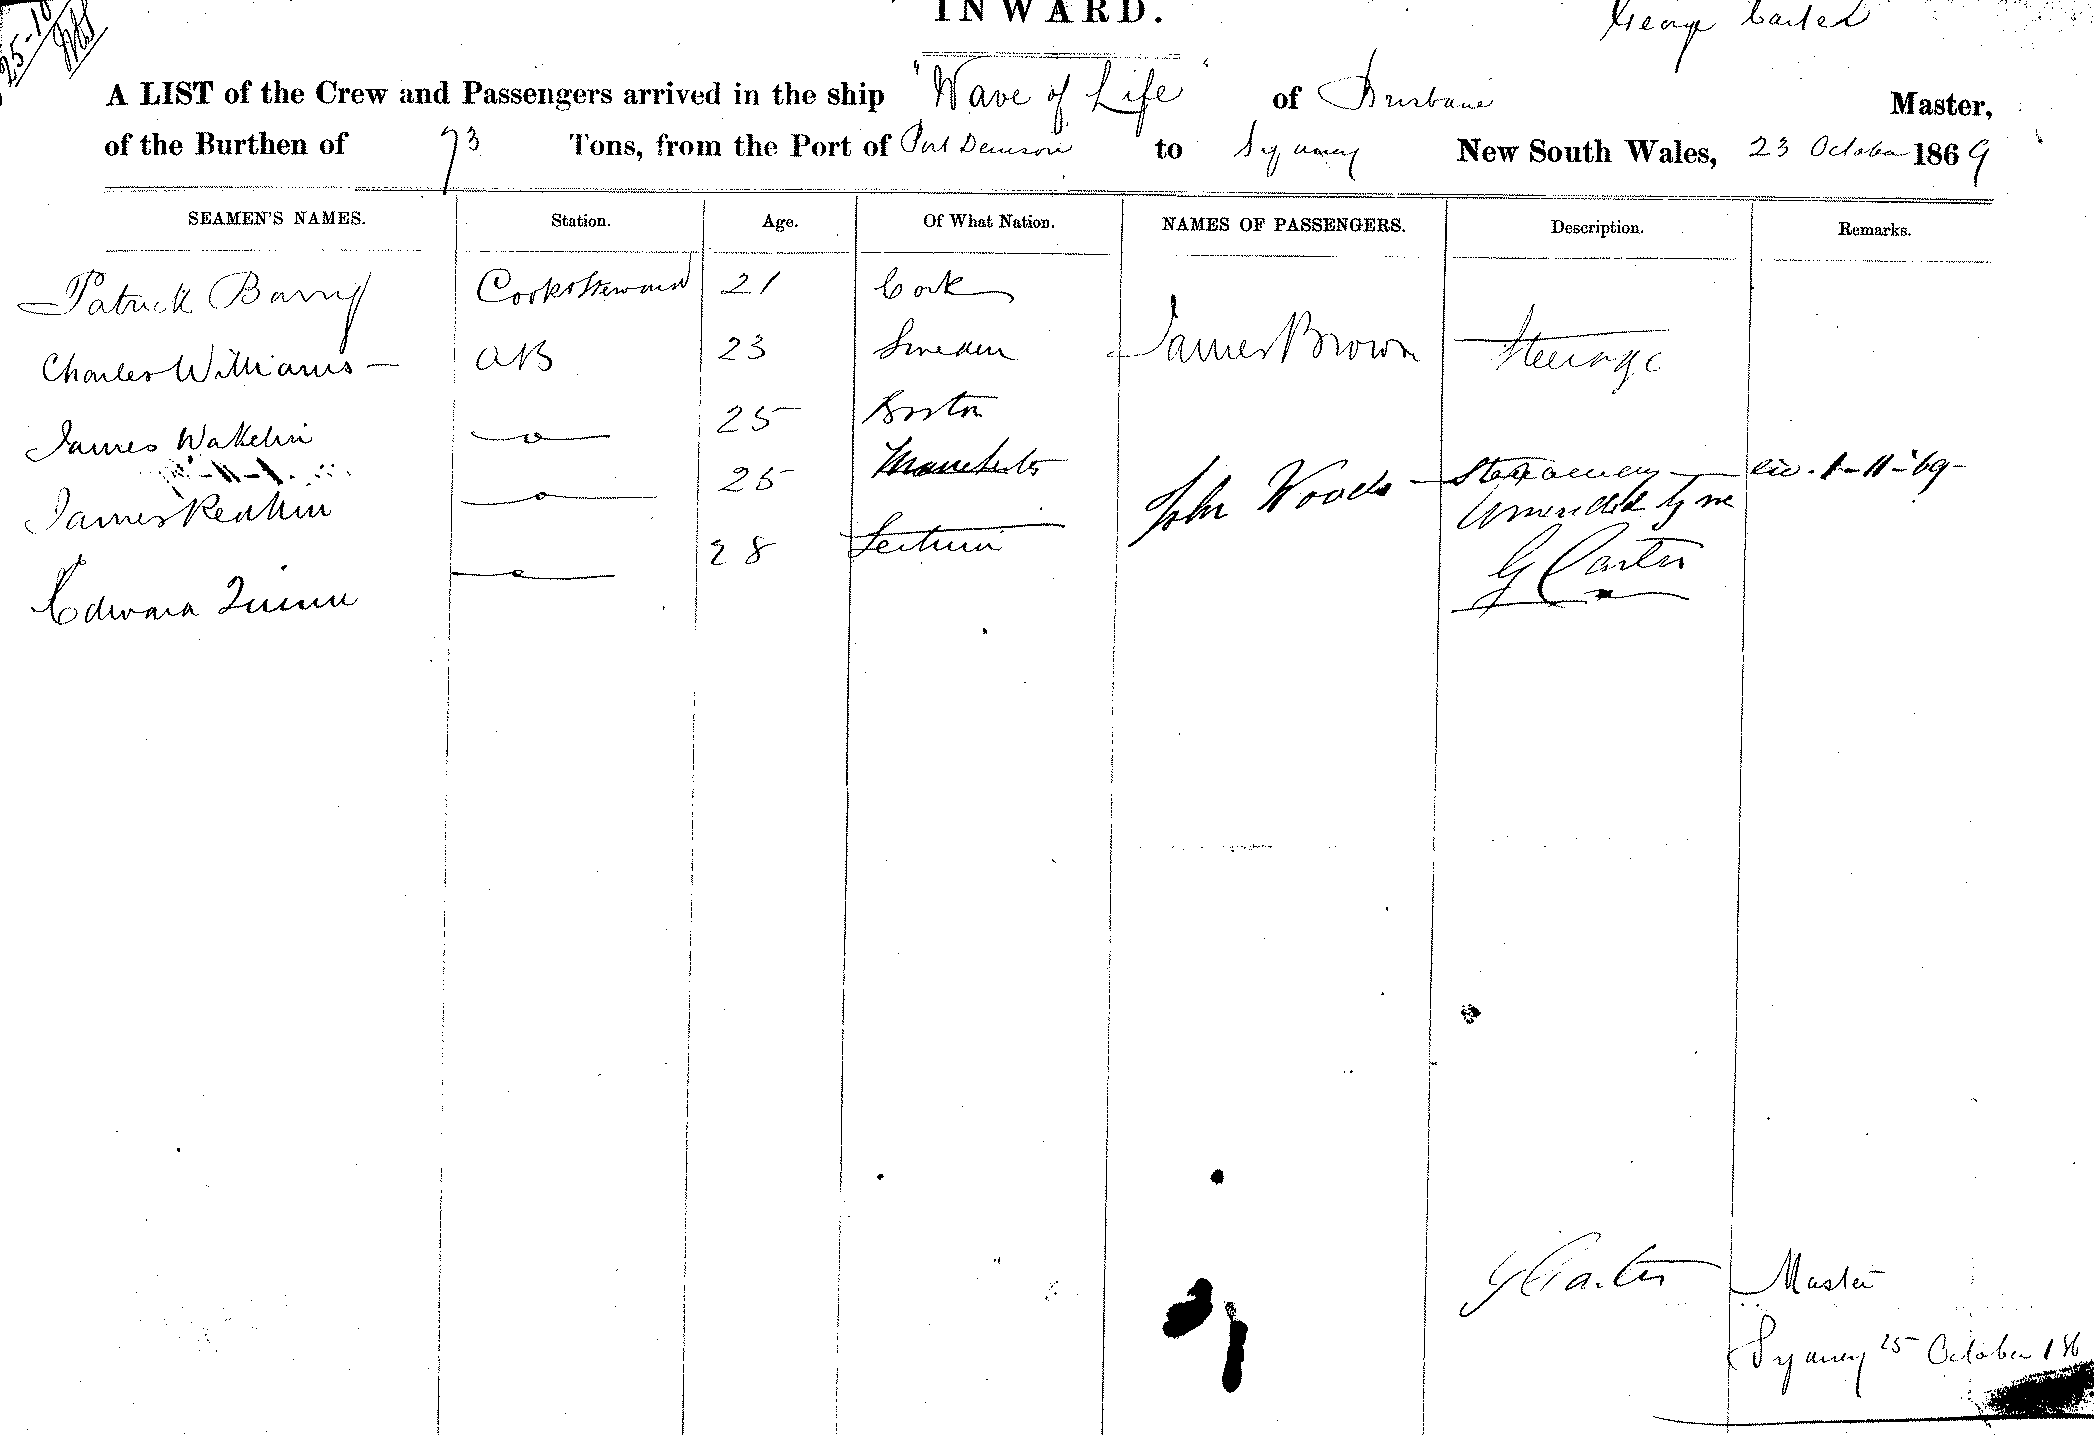 25-10
INWARD.
George Carter
A LIST of the Crew and Passengers arrived in the ship "Wave of Life" of Brisbane Master,
of the Burthen of 73 Tons, from the Port of Port Denison to Sydney New South Wales, 23 October 1869
SEAMEN'S NAMES. Station. Age. Of What Nation. NAMES OF PASSENGERS. Description. Remarks.
Patrick Barry Cook & Steward 21 Cork
Charles Williams - AB 23 Sweden James Brown Steerage
James Wakelin —o— 25 Boston
James —o— 25 Manchester John Woods - Stowaway - 1-11-69-
Amended by me
Edward Quinn —o— 28 G Carter
G Carter Master
Sydney 25 October 186